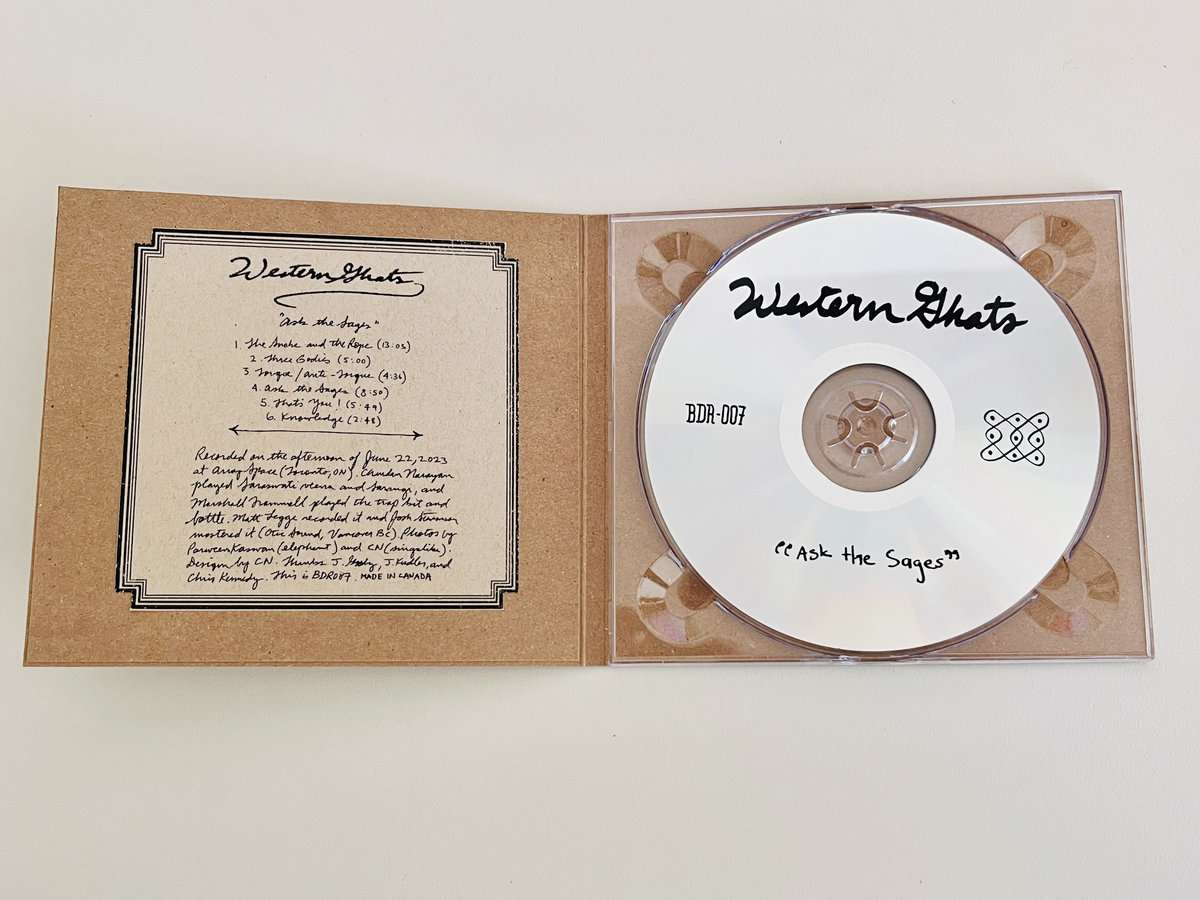 Western Ghats
"Ask the Sages"
1. The Snake and the Rope (13:05)
2. Three Bodies (5:00)
3. Torque / Anti-Torque (4:36)
4. Ask the Sages (8:50)
5. That's You! (5:49)
6. Knowledge (2:48)
Recorded on the afternoon of June 22, 2023
at Array Space (Toronto, ON). Chandan Narayan
played Saraswati veena and Sarangi, and
Marshall Trammell played the trap kit and
battle. Matt Legge recorded it and Josh Stevenson
mastered it (Otic Sound, Vancouver BC). Photos by
Parveen Kaswan (elephant) and CN (singalika).
Design by CN. Thanks J. , J. , and
Chris Kennedy. This is BDR007. MADE IN CANADA
Western Ghats
BDR-007
"Ask the Sages"